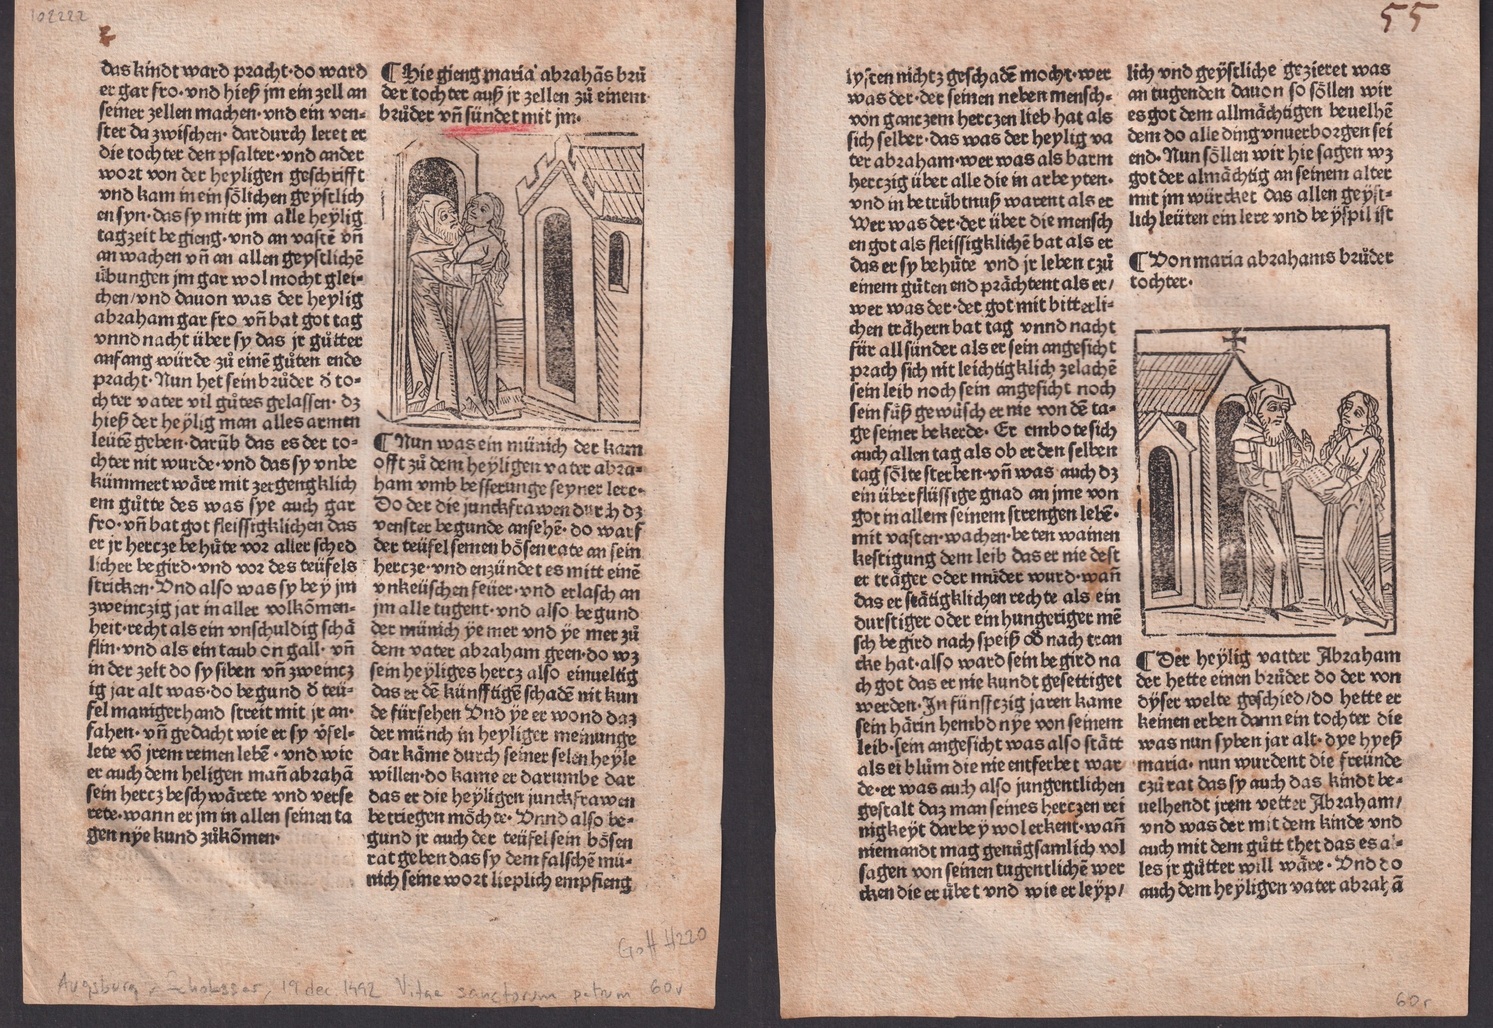 102222
das kindt ward pracht·do ward
er gar fro·vnd hieß jm ein zell an
seiner zellen machen·vnd ein ven⸗
ster da zwischen·dardurch leret er
die tochter den psalter·vnd ander
wort von der heyligen geschrifft
vnd kam in ein sőlichen geÿstlich
en syn·das sy mitt jm alle heÿlig
tagzeit begieng·vnd an vastē vñ
an wachen vñ an allen geystlichē
übungen jm gar wol mocht glei⸗
chen/vnd dauon was der heylig
abraham gar fro vñ bat got tag
vnnd nacht über sy das jr gůtter
anfang würde zů einē gůten ende
pracht·Nun het sein brůder d̕ to⸗
chter vater vil gůtes gelassen·dz
hieß der heÿlig man alles armen
leütē geben·darūb das es der to⸗
chter nit wurde·vnd das sy vnbe
kümmert wåre mit zergengklich
em gůtte des was sye auch gar
fro·vñ bat got fleissigklichen das
er jr hercze behůte vor aller sched
licher begird·vnd vor des teüfels
stricken·Vnd also was sy beÿ jm
zweinczig jar in aller volkōmen⸗
heit·recht als ein vnschuldig schā
flin·vnd als ein taub on gall·vñ
in der zeit do sy siben vñ zweincz
ig jar alt was·do begund d̕ teü⸗
fel manigerhand streit mit jr an⸗
fahen·vñ gedacht wie er sy v̄sel⸗
lete vō jrem reinen lebē·vnd wie
er auch dem heligen mañ abrahā
sein hercz beschwårete vnd verse
rete·wann er jm in allen seinen ta
gen nÿe kund zůkōmen·
¶Hie gieng maria abrahās brů
der tochter auß jr zellen zů einem
brůder vñ sündet mit jm·
¶Nun was ein münich der kam
offt zů dem heÿligen vater abra⸗
ham vmb besserunge seyner lere·
Do der die junckfrawen durch dz
venster begunde ansehē·do warf
der teüfel seinen bősen rate an sein
hercze·vnd enzündet es mitt einē
vnkeüschen feüer·vnd erlasch an
jm alle tugent·vnd also begund
der münich ÿe mer vnd ÿe mer zů
dem vater abraham geen·do wz
sein heÿliges hercz also einueltig
das er dē künfftigē schadē nit kun
de fürsehen Vnd ÿe er wond daz
der münch in heyliger meinunge
dar kåme durch seiner selen heyle
willen·do kame er darumbe dar
das er die heÿligen junckfrawen
betriegen mőchte·Vnnd also be⸗
gund jr auch der teüfel sein bősen
rat geben das sy dem falschē mü⸗
nich seine wort lieplich empfieng
Goff H220
Augsburg : Schobsser, 19 dec. 1492 Vitae sanctorum patrum 60v
55
lysten nichtz geschadē mocht·wer
was der·der seinen neben mensch⸗
von ganczem herczen lieb hat als
sich selber·das was der heylig va
ter abraham·wer was als barm
herczig über alle die in arbeyten·
vnd in betrübtnuß warent als er
Wer was der·der über die mensch
en got als fleissigklichē bat als er
das er sy behůte vnd jr leben czů
einem gůten end pråchtent als er/
wer was der·der got mit bitterli⸗
chen tråhern bat tag vnnd nacht
für all sünder als er sein angesicht
prach sich nit leichtigklich zelachē
sein leib noch sein angesicht noch
sein fůß gewůsch er nie von dē ta⸗
ge seiner bekerde· Er embote sich
auch allen tag als ob er den selben
tag sőlte sterben·vñ was auch dz
ein überflüssige gnad an jme von
got in allem seinem strengen lebē·
mit vasten·wachen·beten wainen
kestigung dem leib das er nie dest
er tråger oder můder wurd·wañ
das er ståtigklichen rechte als ein
durstiger oder ein hungeriger mē
sch begird nach speiß od̕ nach tran
cke hat·also ward sein begird na
ch got das er nie kundt gesettiget
werden·In fünffczig jaren kame
sein hårin hembd nye von seinem
leib·sein angesicht was also stått
als ei blům die nie entferbet war
de·er was auch also jungentlichen
gestalt daz man seines herczen rei
nigkeÿt darbeÿ wol erkent·wañ
niemandt mag genůgsamlich vol
sagen von seinen tugentlichē wer
cken die er übet vnd wie er leÿp/
lich vnd geÿstliche gezieret was
an tugenden dauon so sőllen wir
es got dem allmåchtigen beuelhē
dem do alle ding vnuerborgen sei
end·Nun sőllen wir hie sagen wz
got der almåchtig an seinem alter
mit jm würcket das allen geÿst⸗
lich leüten ein lere vnd beÿspil ist
¶Von maria abrahams brůder
tochter·
¶Der heÿlig vatter Abraham
der hette einen brůder do der von
dÿser welte geschied/do hette er
keinen erben dann ein tochter die
was nun syben jar alt·dye hyeß
maria·nun wurdent die freünde
czů rat das sy auch das kindt be⸗
uelhendt jrem vetter Abraham/
vnd was der mit dem kinde vnd
auch mit dem gůtt thet das es al⸗
les jr gůtter will wåre·Vnd do
auch dem heÿligen vater abrahā
60r